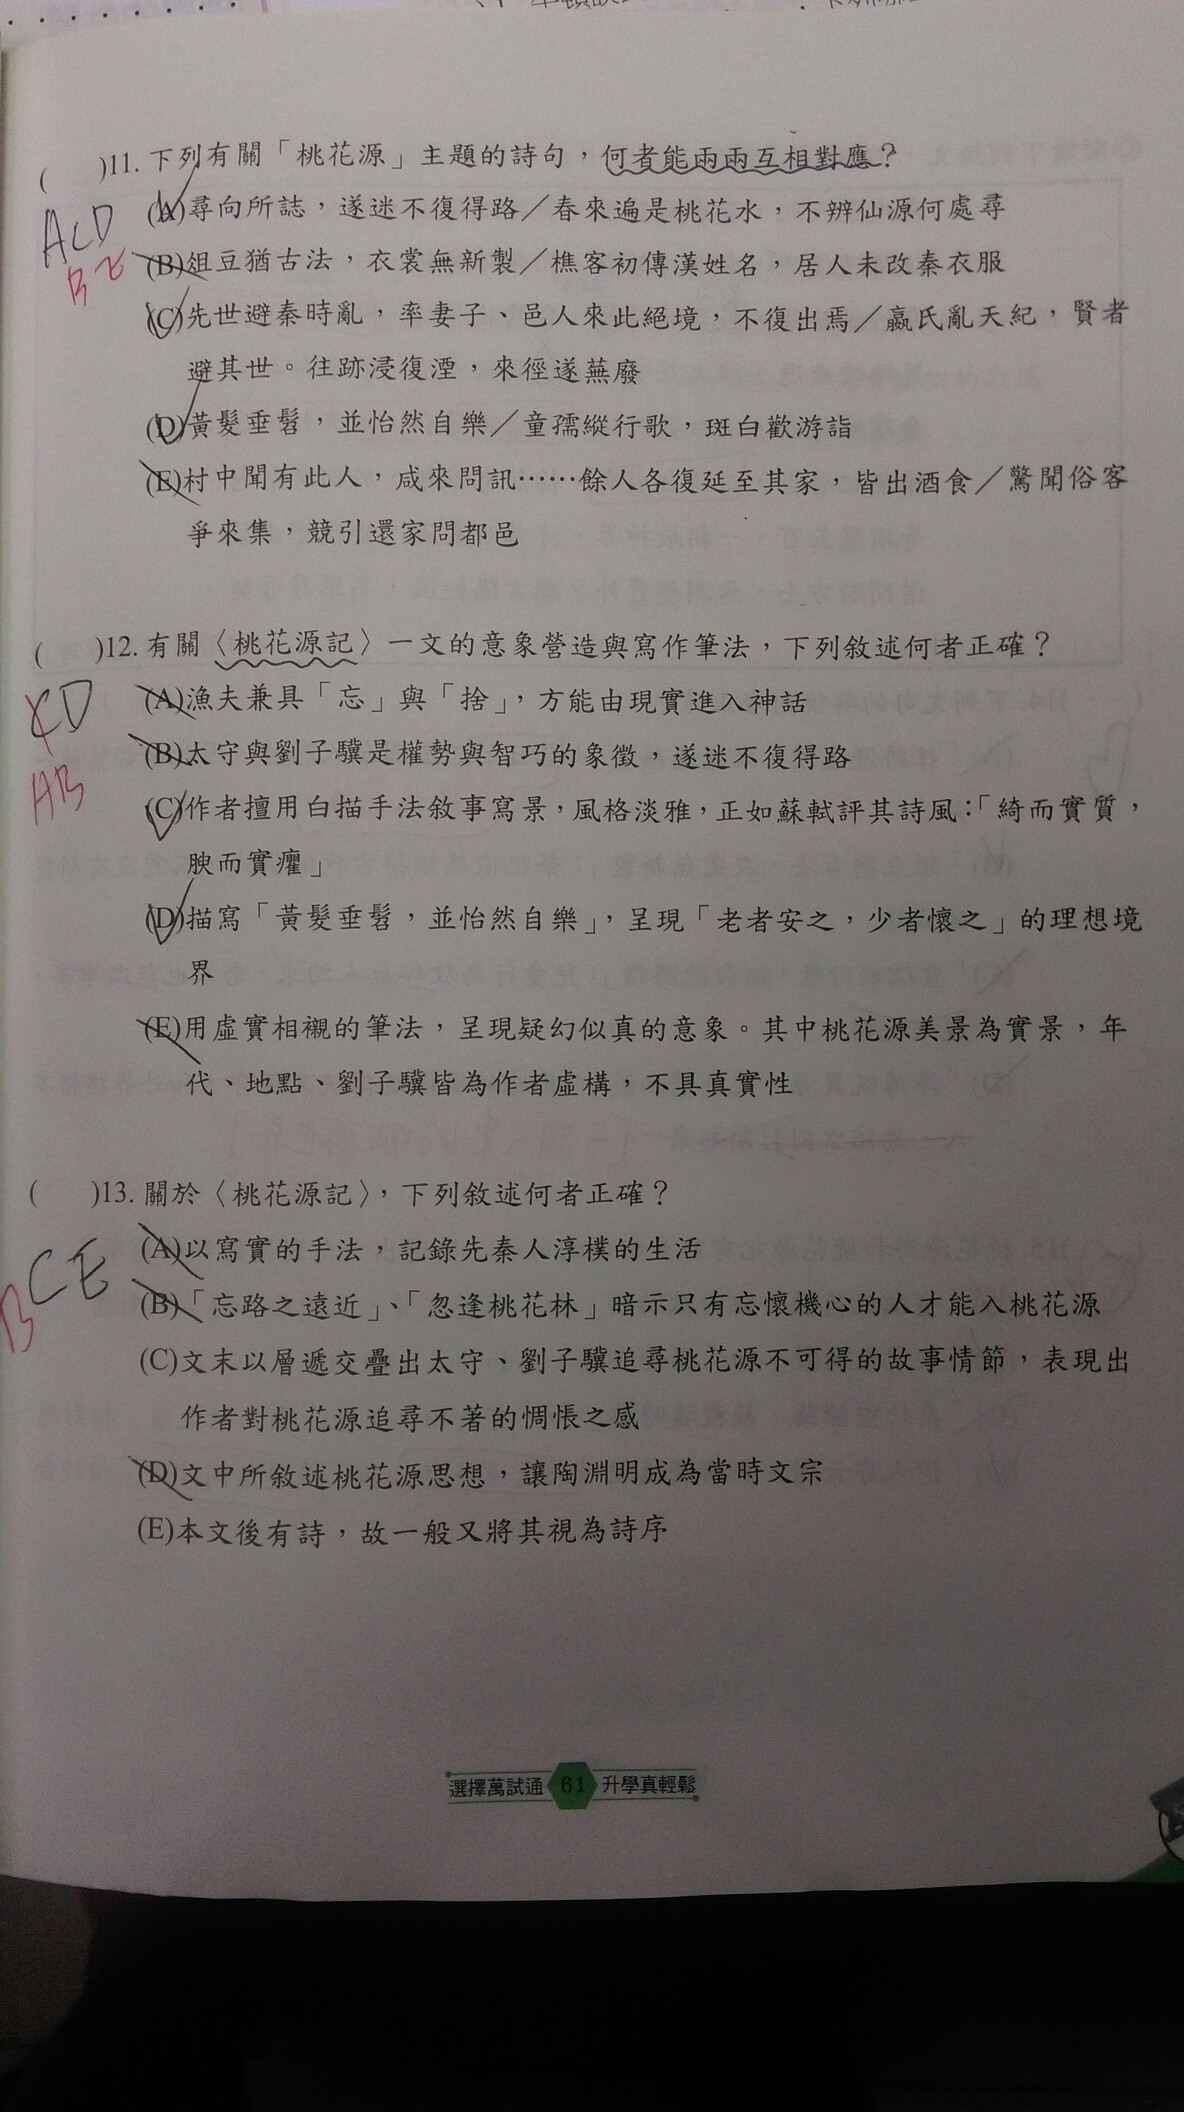 ( )11. 下列有關「桃花源」主題的詩句，何者能兩兩互相對應？
ACD
BE
(A)尋向所誌，遂迷不復得路／春來遍是桃花水，不辨仙源何處尋
(B)俎豆猶古法，衣裳無新製／樵客初傳漢姓名，居人未改秦衣服
(C)先世避秦時亂，率妻子、邑人來此絕境，不復出焉／嬴氏亂天紀，賢者
避其世。往跡浸復湮，來徑遂蕪廢
(D)黃髮垂髫，並怡然自樂／童孺縱行歌，斑白歡游詣
(E)村中聞有此人，咸來問訊……餘人各復延至其家，皆出酒食／驚聞俗客
爭來集，競引還家問都邑
( )12. 有關〈桃花源記〉一文的意象營造與寫作筆法，下列敘述何者正確？
CD
AB
(A)漁夫兼具「忘」與「捨」，方能由現實進入神話
(B)太守與劉子驥是權勢與智巧的象徵，遂迷不復得路
(C)作者擅用白描手法敘事寫景，風格淡雅，正如蘇軾評其詩風：「綺而實質，
腴而實癯」
(D)描寫「黃髮垂髫，並怡然自樂」，呈現「老者安之，少者懷之」的理想境
界
(E)用虛實相襯的筆法，呈現疑幻似真的意象。其中桃花源美景為實景，年
代、地點、劉子驥皆為作者虛構，不具真實性
( )13. 關於〈桃花源記〉，下列敘述何者正確？
CE
B
(A)以寫實的手法，記錄先秦人淳樸的生活
(B)「忘路之遠近」、「忽逢桃花林」暗示只有忘懷機心的人才能入桃花源
(C)文末以層遞交疊出太守、劉子驥追尋桃花源不可得的故事情節，表現出
作者對桃花源追尋不著的惆悵之感
(D)文中所敘述桃花源思想，讓陶淵明成為當時文宗
(E)本文後有詩，故一般又將其視為詩序
選擇萬試通 61 升學真輕鬆